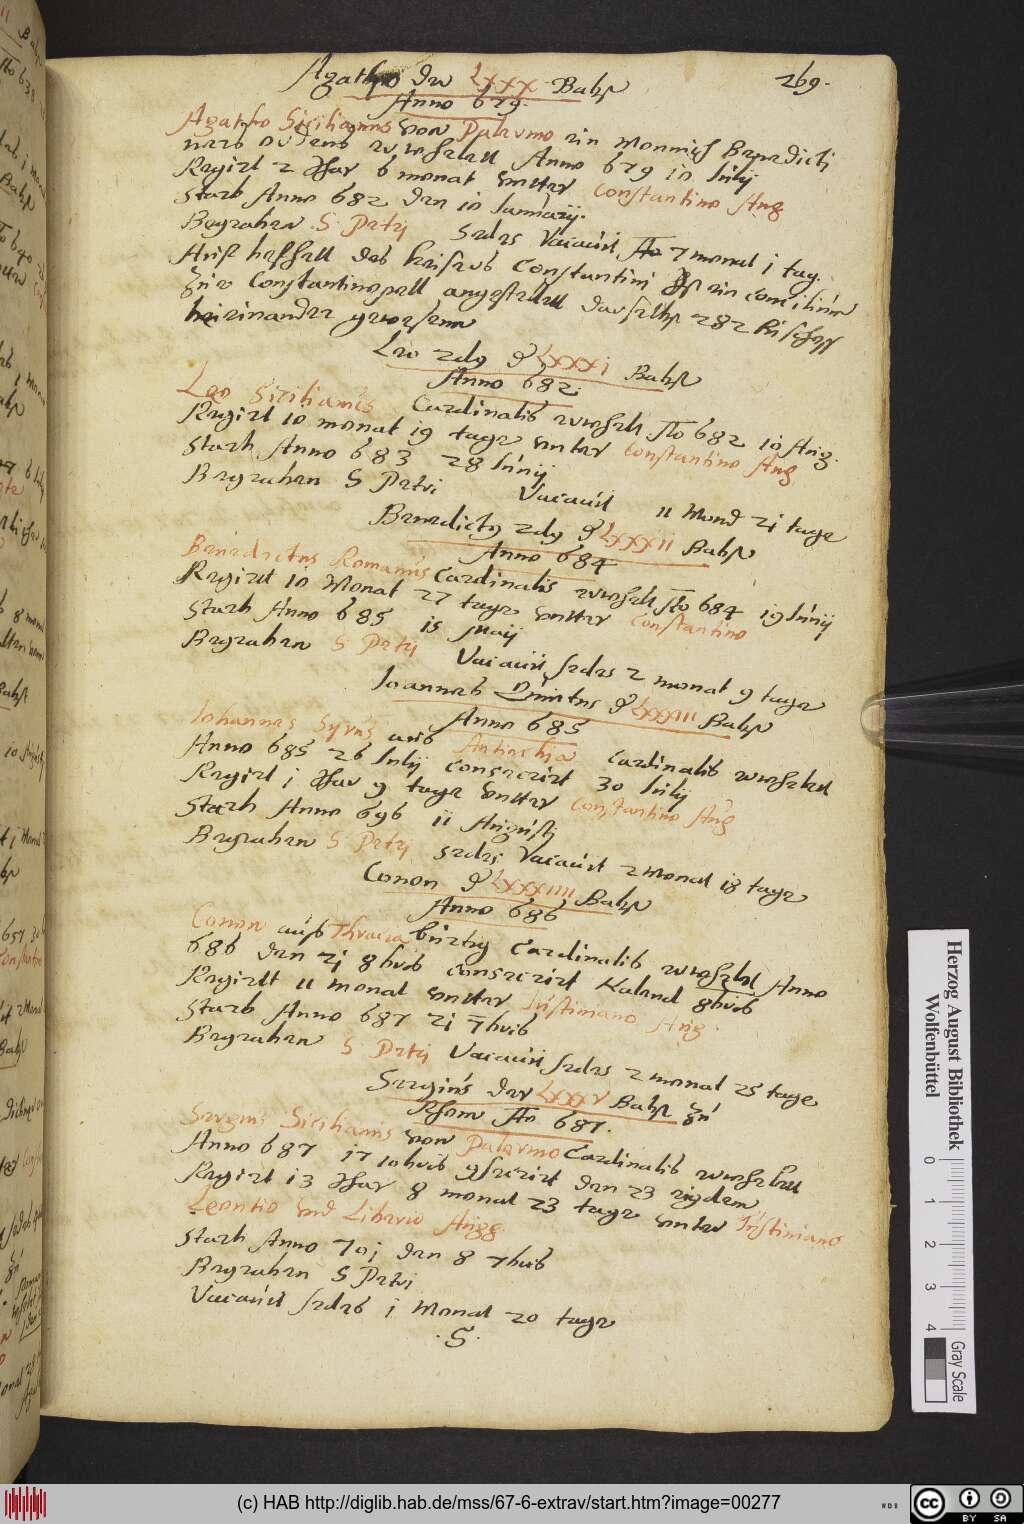 Agatho der LXXX Babst
269.
Anno 679.
Agatho Sicilianus von Palermo ein monnich Benedicti
ordens erwehelett Anno 679 10 Julij
Regirt 2 Jhar 6 monat vnter Constantino Aug
Starb Anno 682 den 10 Januarij.
Begraben S. Petrj Sedes Vacauit 7 monat i tag.
Auf beffell des keisers Constantini Ist ein concilium
Zu Constantinopell angestellett daselbst 282 bischoff
beieinander gewesenn
Leo 2dg d LXXXI Babst
Anno 682
Leo Sicilianus Cardinalis erwehelt Ao 682 10 Aug.
Regirt 10 monat 19 tage vnter Constantino Aug
Starb Anno 683 28 Junij
Begraben S Petri Vacauit 11 Mond 21 tage
Benedictg 2dg d LXXXII Babst
Anno 684
Benedictus Romanus Cardinalis erwehelt Ao 684 19 Junij
Regirt 10 Monat 27 tage vntter Constantino
Starb Anno 685 15 Maij
Begraben S Petrj Vacauit sedes 2 monat 9 tage
Ioannes Quintus d LXXXIII Babst
Anno 685
Iohannes Syrus aus Antiochia Cardinalis erwehelett
Anno 685 26 Julij consecrirt 30 Julij
Regirt i Jhar 9 tage vntter Constantino Aug
Starb Anno 696 11 Augustj
Begraben S Petrj Sedes Vacauit 2 Monat 18 tage
Conon d LXXXIIII Babst
Anno 686
Conon aus Thracia burtig Cardinalis erwehelet Anno
686 den 21 8bris consecrirt Kalend 8bris
Regirett 11 monat vntter Justiniano Aug.
Starb Anno 687 21 7bris
Begraben S Petrj Vacauit sedes 2 monat 25 tage
Sergius der LXXXV Babst zu
Rhom Ao 687.
Sergius Sicilianus von Palermo Cardinalis erwehelett
Anno 687 17 10bris den 23 eiusdem
Regirt 13 Jhar 8 monat 23 tage vnter Justiniano
Leontio vnd Liberio Augg.
Starb Anno 701 den 8 7bris
Begraben S Petri
Vacauit sedes i Monat 20 tage
.S.
Herzog August Bibliothek
Wolfenbüttel
0 1 2 3 4
Gray Scale
(c) HAB http://diglib.hab.de/mss/67-6-extrav/start.htm?image=00277
WDB
CC BY SA